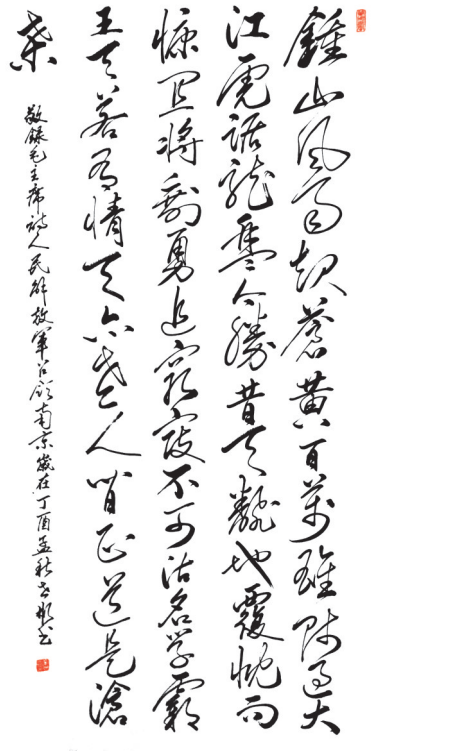 鍾山風雨起蒼黃百萬雄師過大
江虎踞龍盤今勝昔天翻地覆慨而
慷宜將剩勇追窮寇不可沽名學霸
王天若有情天亦老人間正道是滄
桑
敬錄毛主席詩人民解放軍占領南京歲在丁酉孟秋書